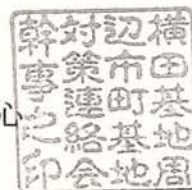 横田基地周
辺市町基地
対策連絡会
幹事之印
心